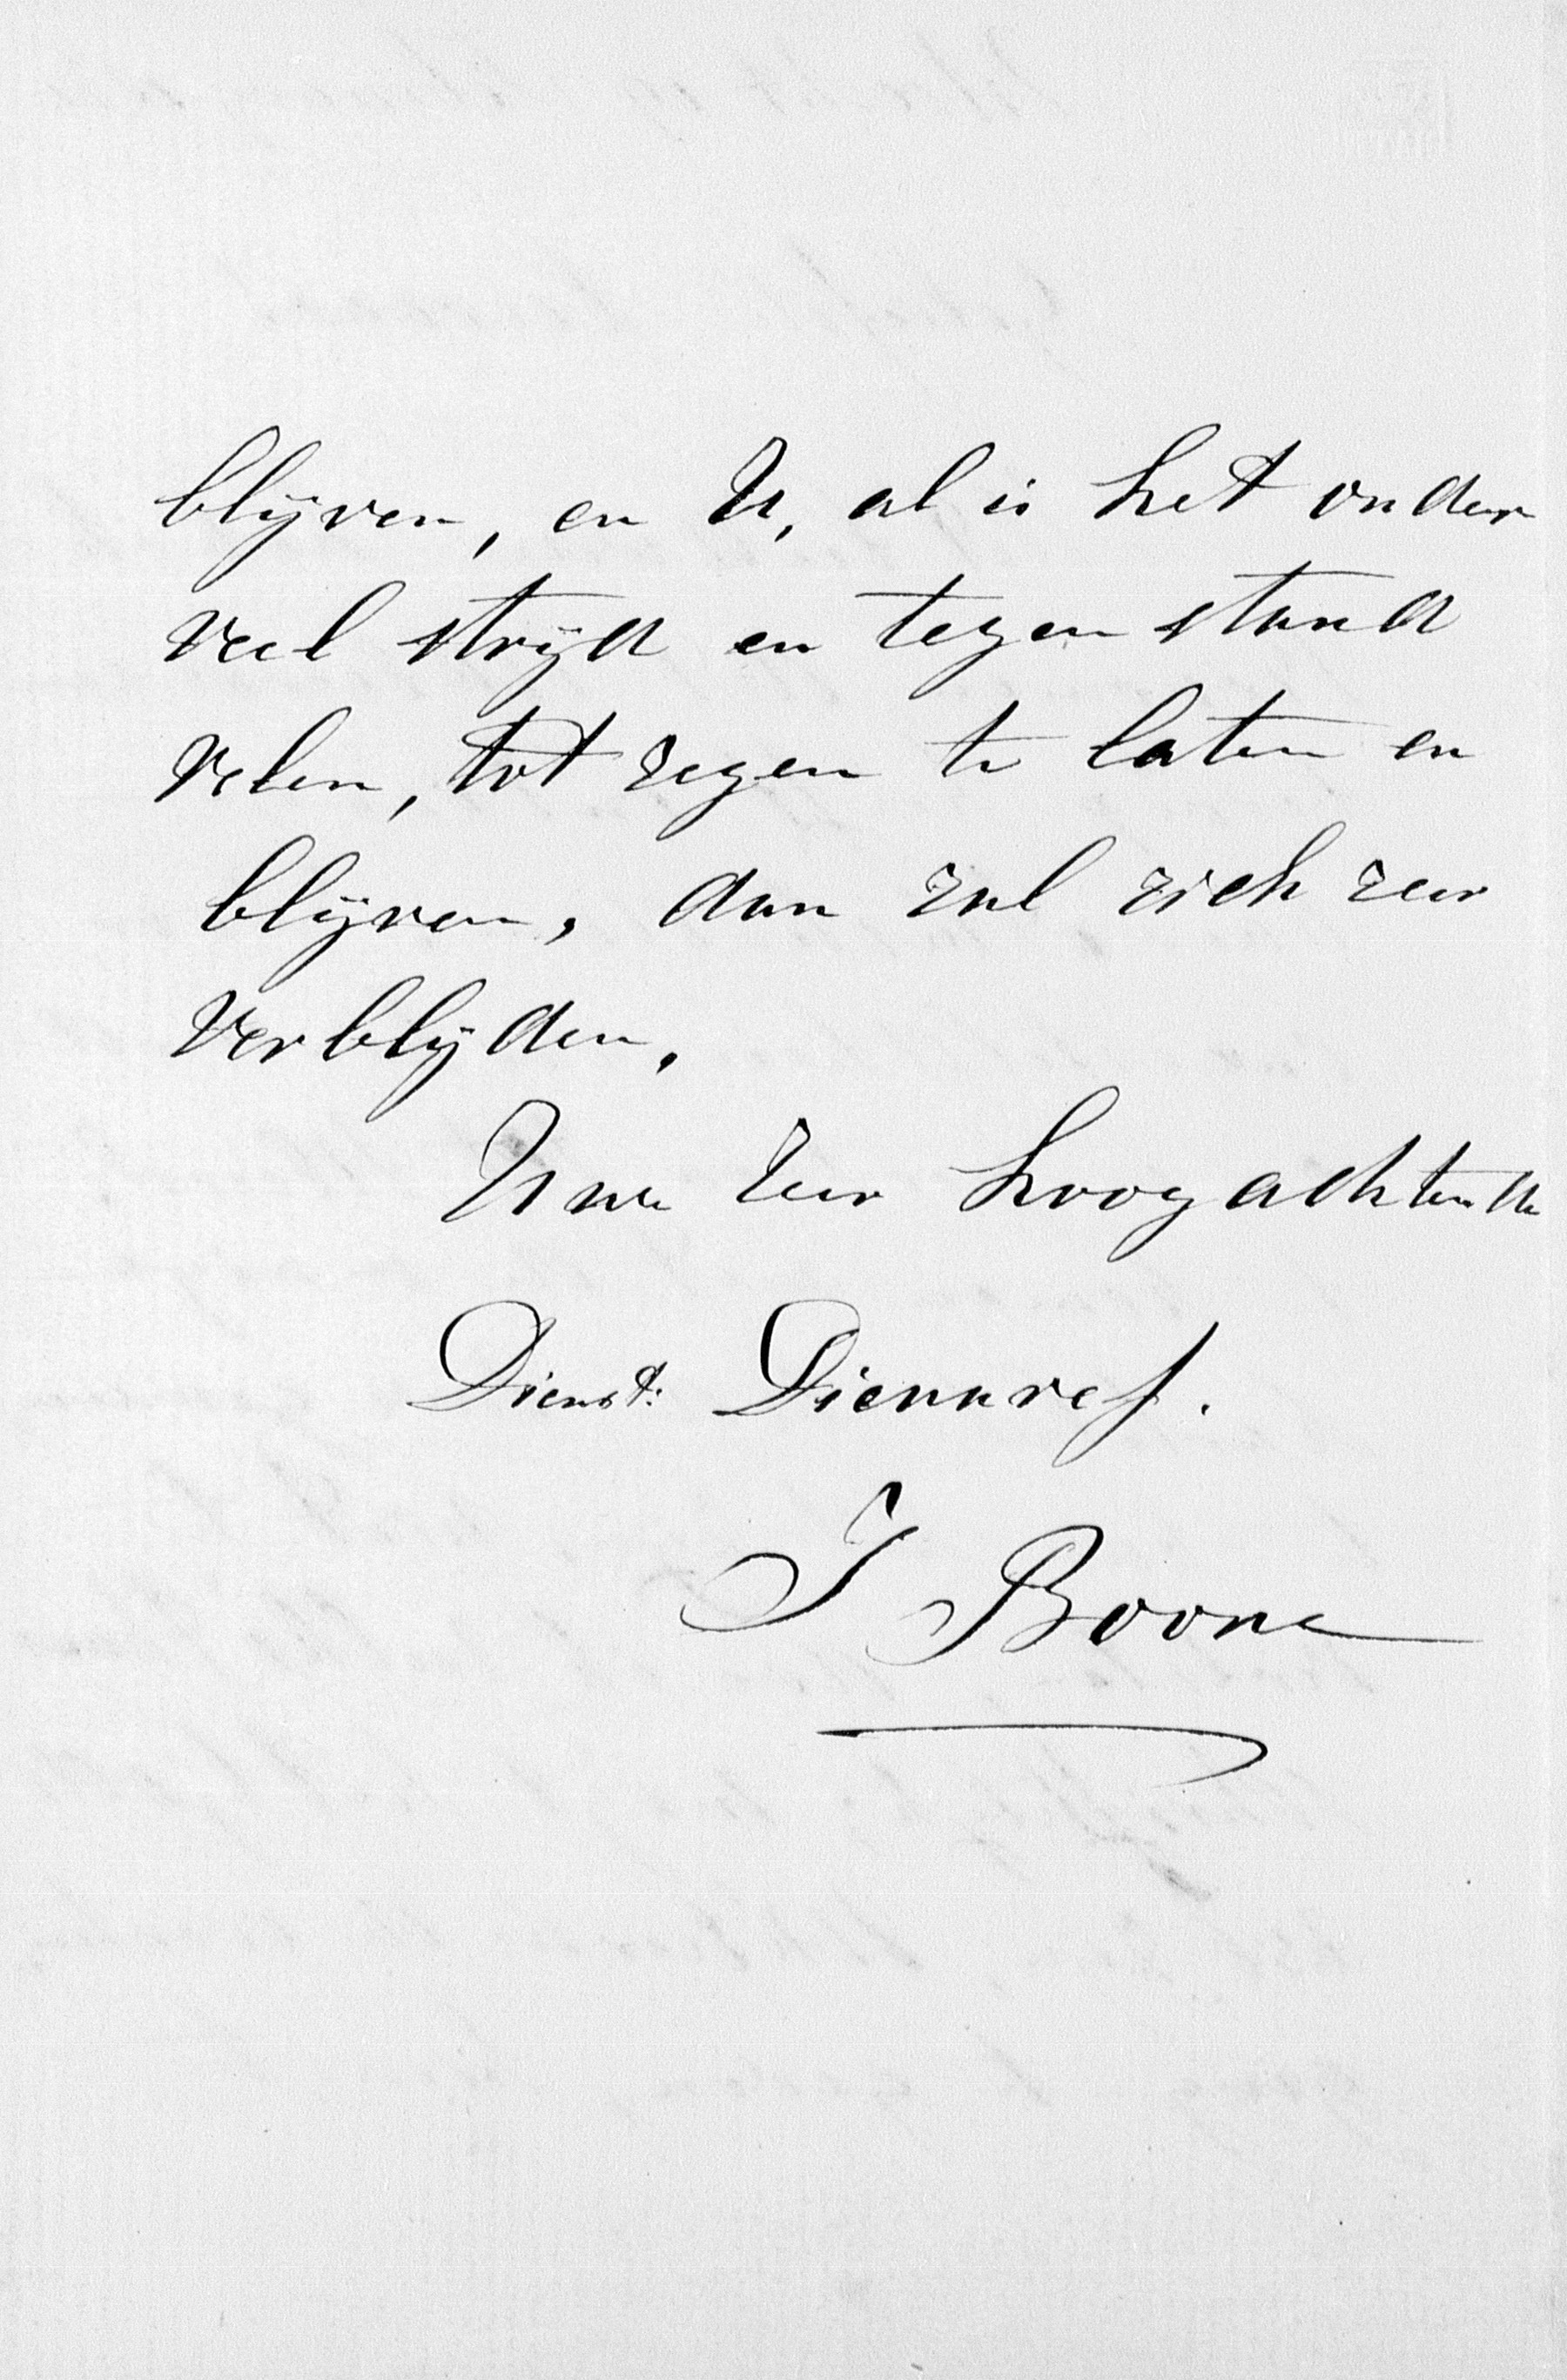 blijven, en U, al is het onder
veel strijd en tegenstand
velen, tot zegen te laten en
blijven, dan zal zich zeer
verblijden.
Uwe Zeer hoogachtende
Dienst: Dienares.
J Boone